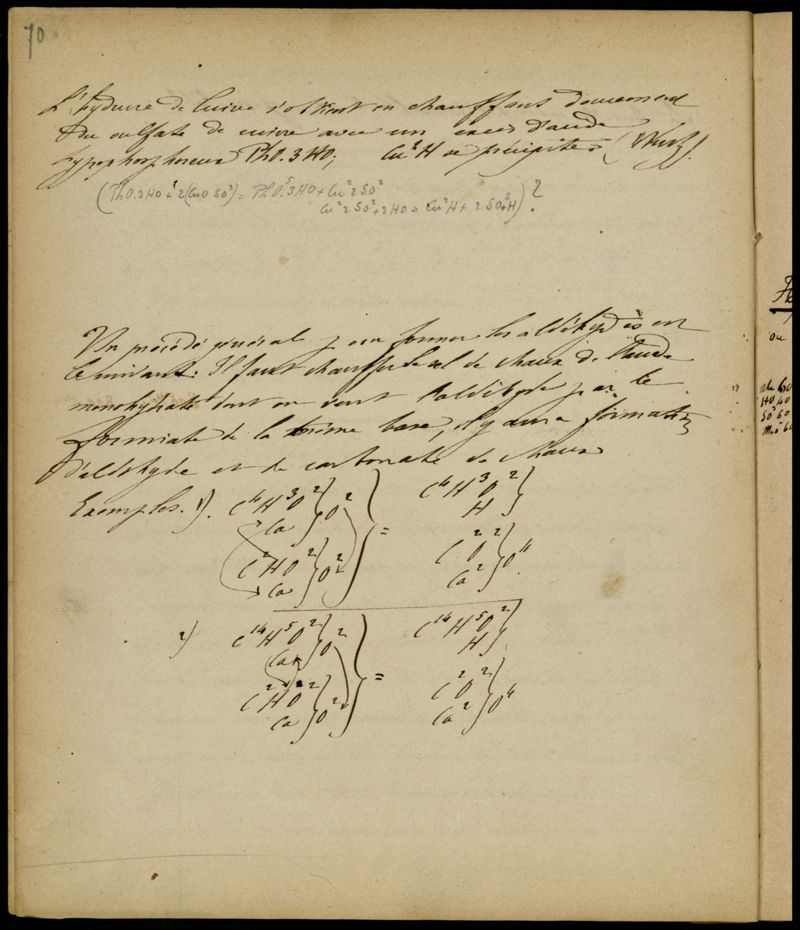 70
L'hydrure de cuivre s'obtient en chauffant doucement
du sulfate de cuivre avec un excès d'acide
hypophosphoreux PhO.3HO; Cu²H se précipite (Wurtz).
(PhO.3HO + 2(CuO SO³) = PhO⁵.3HO + Cu²2SO²
Cu²2SO² + 2HO = Cu²H + 2SO³+H)?
Un procédé général pour former les aldéhydes est
le suivant: Il faut chauffer le sel de chaux de l'acide
monohydraté dont on veut l'aldéhyde par le
formiate de la même base, il y aura formation
d'aldéhyde et de carbonate de chaux
Exemples. 1). C⁴H³O² } O² } = C⁴H³O² }
Ca H
C²HO² } O² C²O² } O⁴
Ca Ca²
2) C¹⁴H⁵O² } O² } = C¹⁴H⁵O² }
Ca H
C²HO² } O² C²O² } O⁴
Ca Ca²
ou
HO 40
SO³ 60